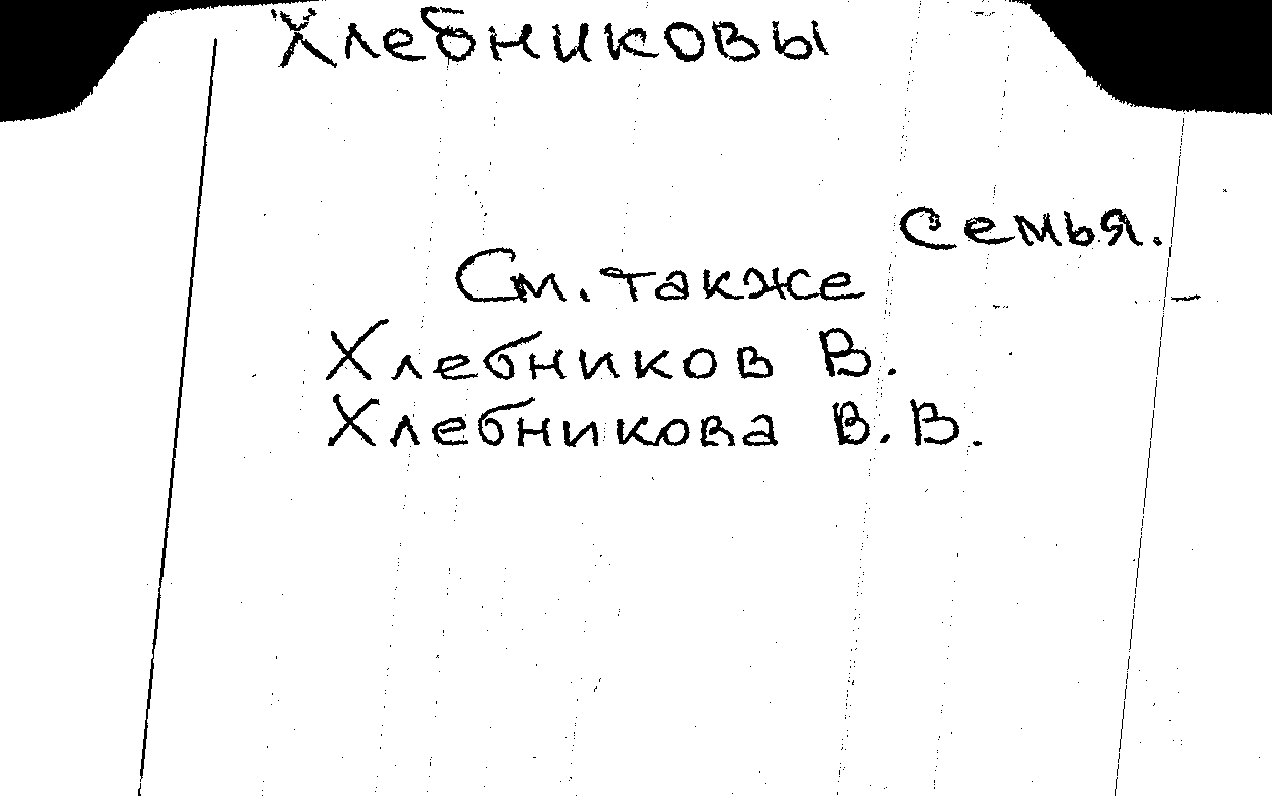 Хлебниковы
семья.
См. также
Хлебников В.
Хлебникова В.В.